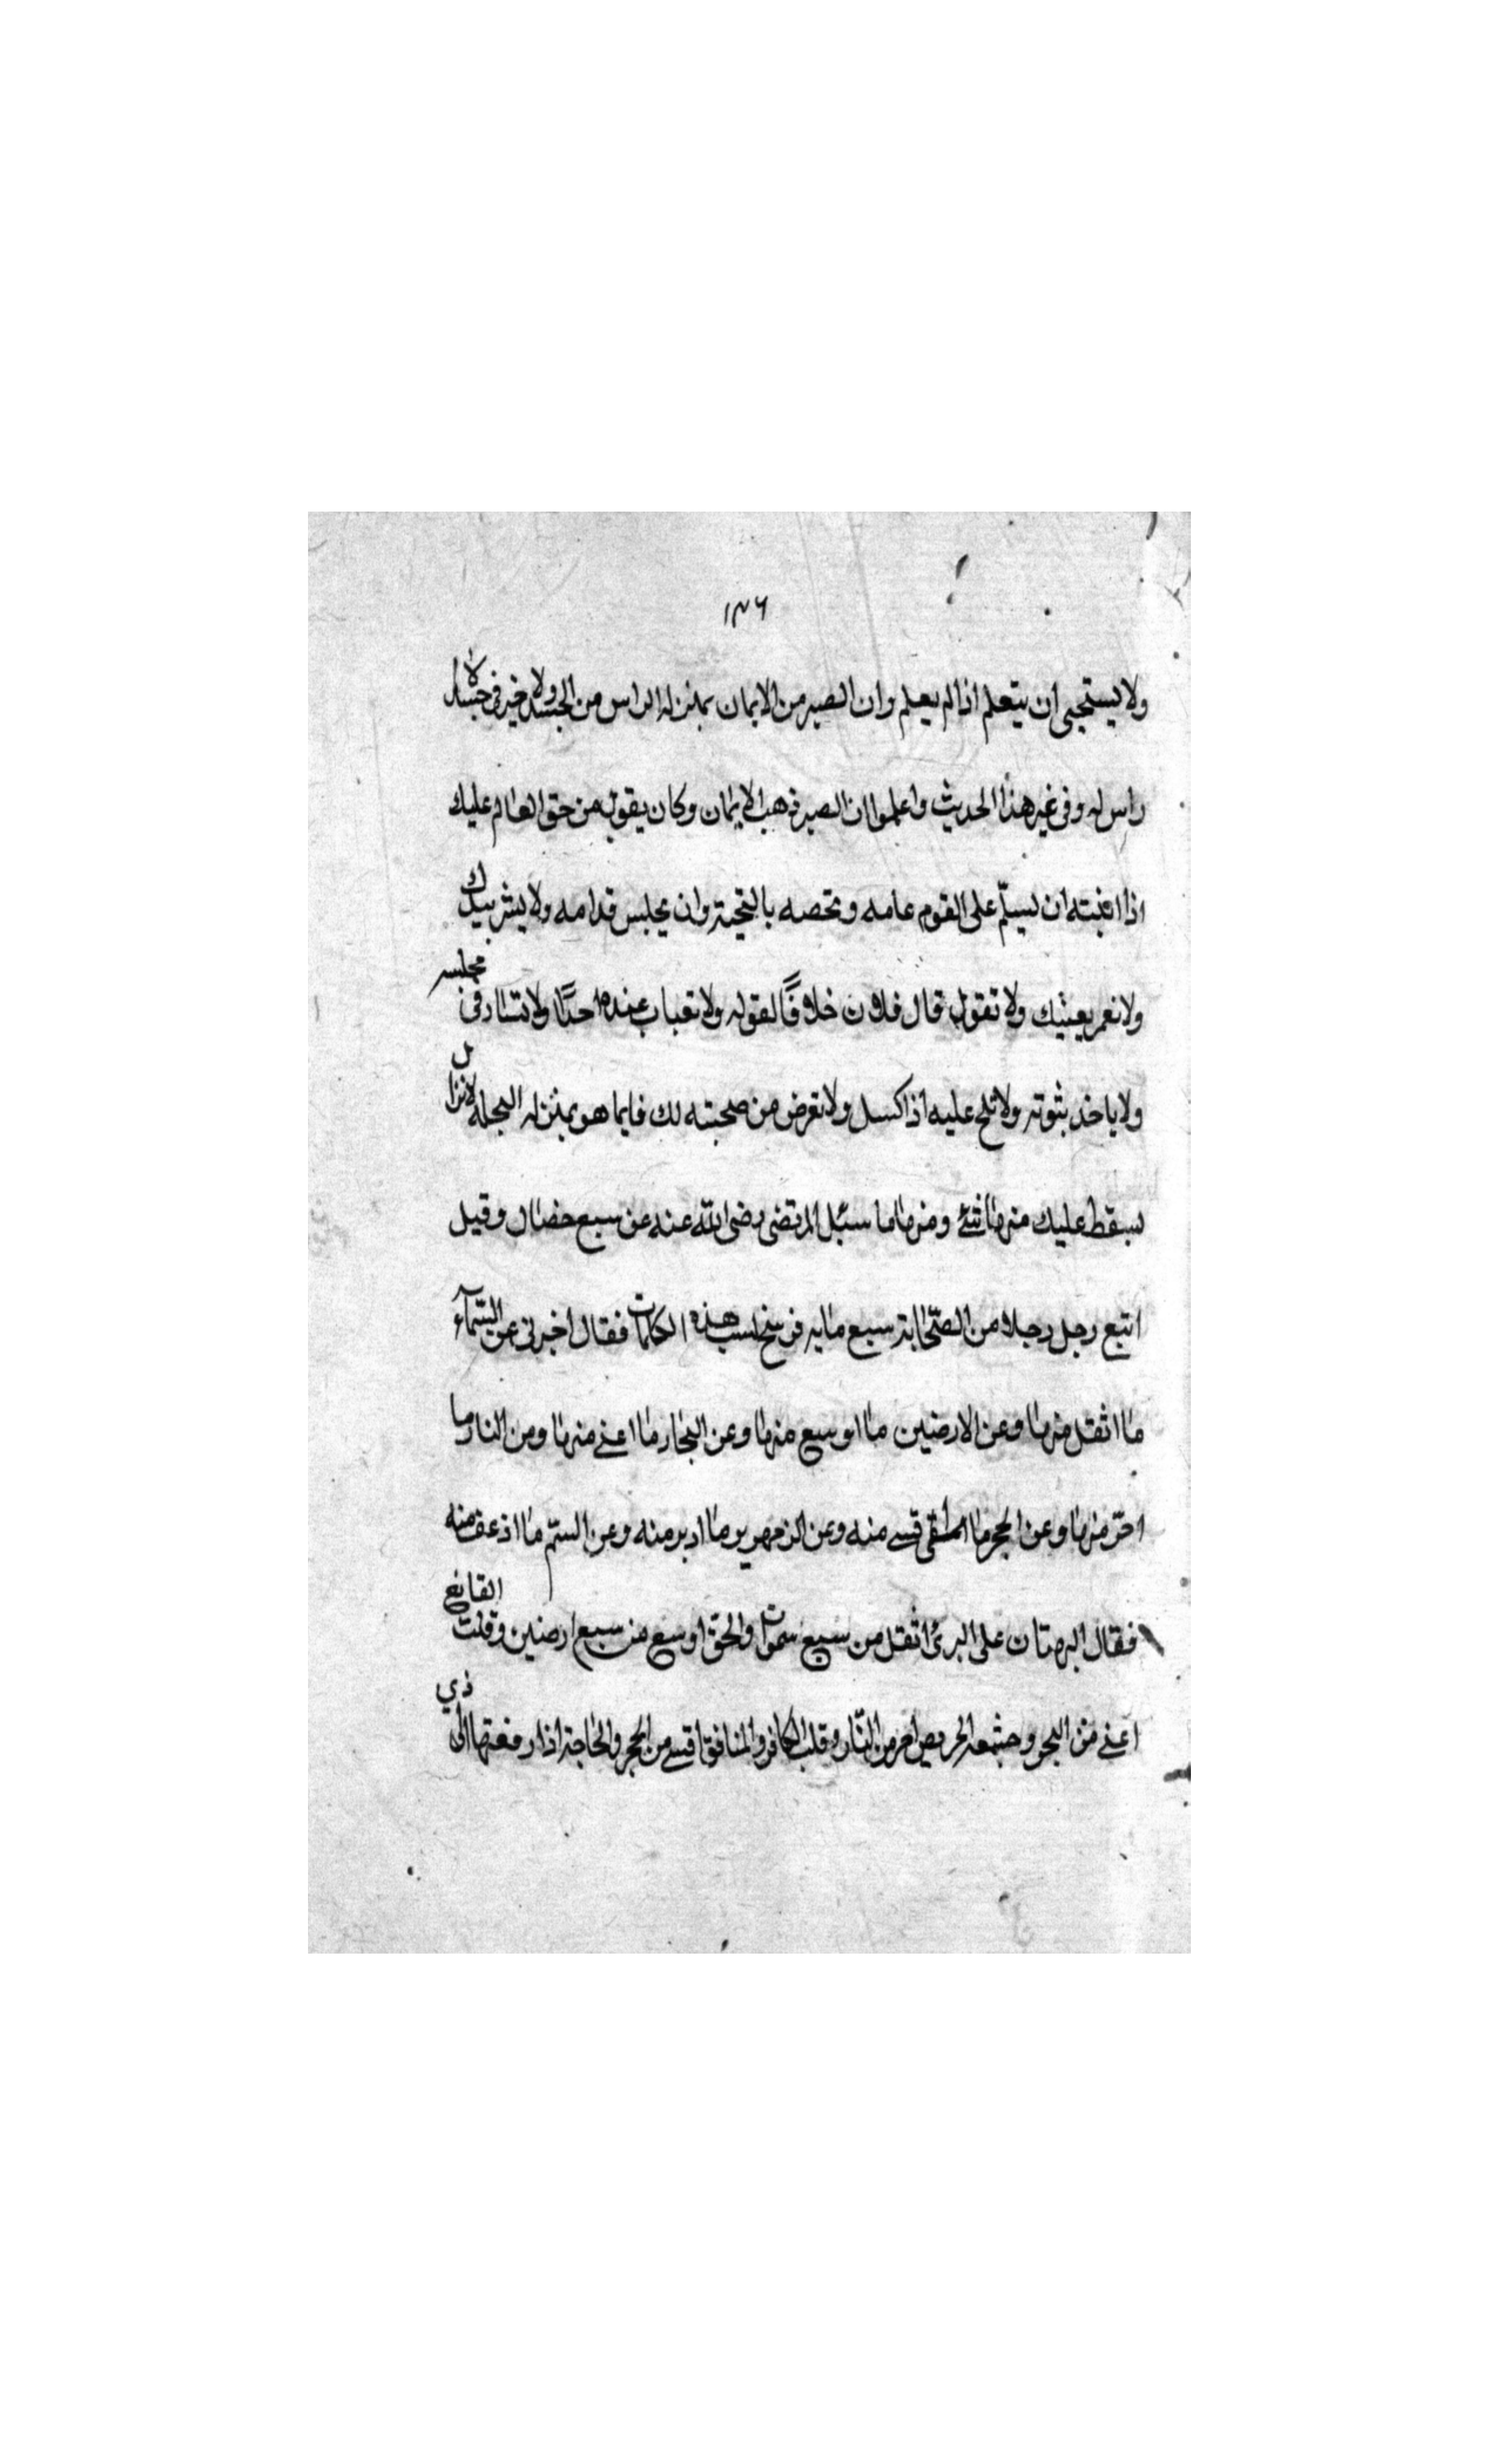 ١٣٦
ولا يستحيى ان يتعلم اذا لم يعلم وان الصبر من الايمان بمنزله الراس من الجسد ولا خير فى جسد لا
راس له وفى غير هذا الحديث واعلموا ان الصبر ذهب الايمان وكان يقول من حق العالم عليك
اذا اتيته ان تسلّم على القوم عامه وتخصه بالتحية وان تجلس قدامه ولا يشر بيدك
ولا تغمز بعينيك ولا تقول قال فلان خلافًا لقوله ولا تعباب عنده احدًا ولا تسار فى مجلسه
ولا ياخذ بثوبه ولا تلح عليه اذا كسل ولا تعرض من صحبته لك فايما هو بمنزله النخله لا تزال
يسقط عليك منها شئ ومنها ما سئل المرتضى رضى الله عنه عن سبع خصال وقيل
اتبع رجل رجلا من الصّحابة سبع مايه فرسخ لسبب هذه الكلمات فقال اخبرنى عن السّمآء
ما اثقل منها وعن الارضين ما اوسع منها وعن البحار ما اغنى منها ومن النار ما
احرّ منها وعن الحجر ما اقسى منه وعن الزمهرير وما ابرد منه وعن السّم ما اذعف منه
فقال البهتان على البرئ اثقل من سبع سموات والحق اوسع من سبع ارضين وقلب القانع
اغنى من البحر وجشعه الحريص احر من النّار وقلب الكافر والمنافق اقسى من الحجر والحاجة اذا رفعتها الى ذي